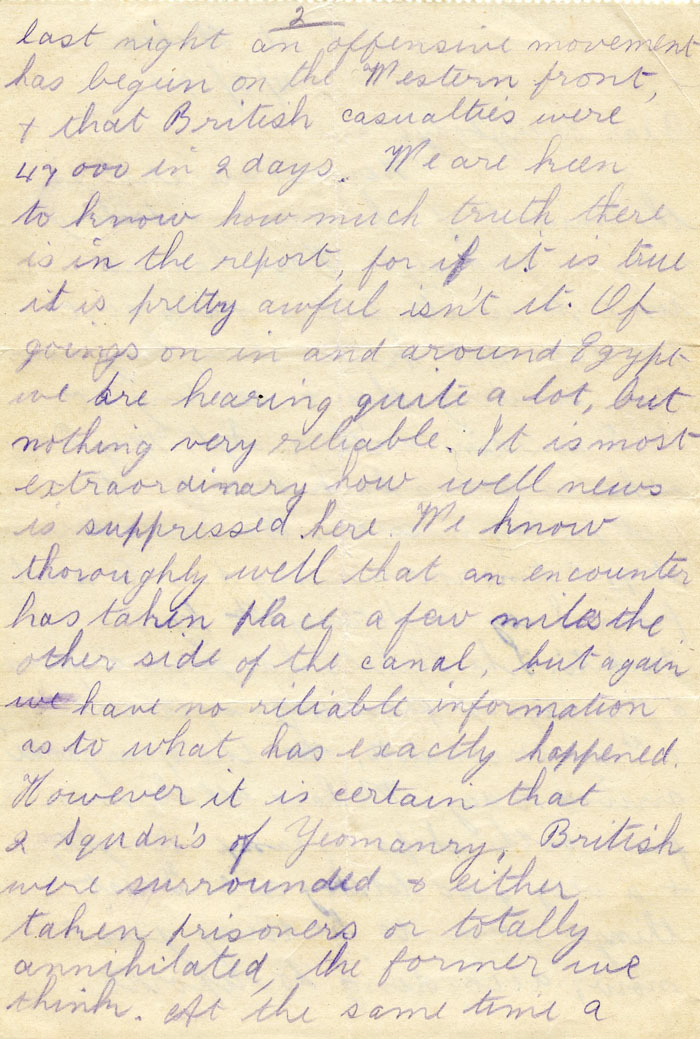 2
last night an offensive movement
has begun on the Western front,
& that British casualties were
47 000 in 2 days. We are keen
to know how much truth there
is in the report, for if it is true
it is pretty awful isn't it. Of
goings on in and around Egypt
we are hearing quite a lot, but
nothing very reliable. It is most
extraordinary how well news
is suppressed here. We know
thoroughly well that an encounter
has taken place a few miles the
other side of the canal, but again
we have no reliable information
as to what has exactly happened.
However it is certain that
2 Squdn's of Yeomanry, British
were surrounded & either
taken prisoners or totally
annihilated, the former we
think. At the same time a